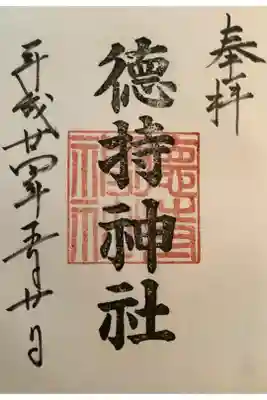 奉拝
徳持神社
徳持神社
平成廿四年五月廿日